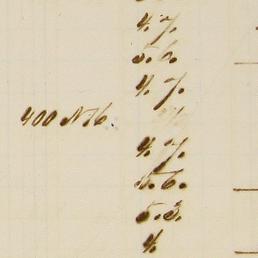 4. 7.
5. 6.
4. 7.
400 N 16.
4. 7.
5. 6.
5. 3.
4.